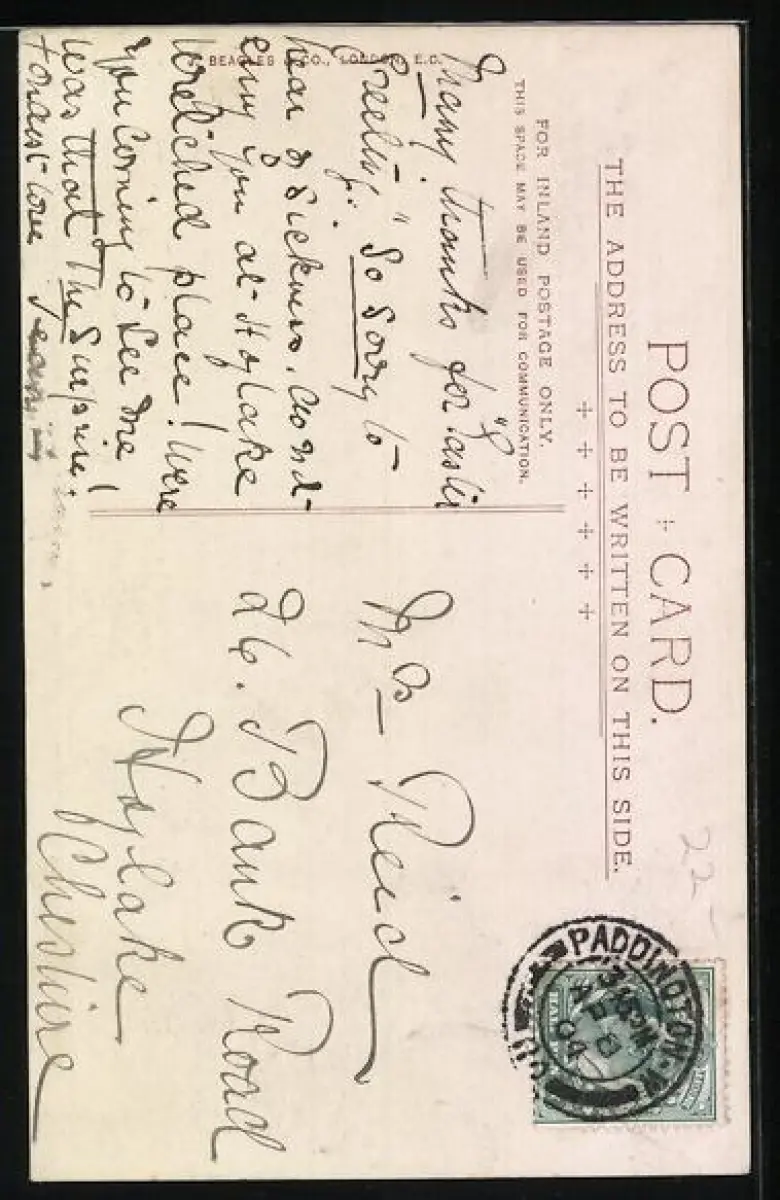 POST CARD.
THE ADDRESS TO BE WRITTEN ON THIS SIDE.
FOR INLAND POSTAGE ONLY.
THIS SPACE MAY BE USED FOR COMMUNICATION.
BEAGLES & CO., LONDON, E.C.
Many thanks for
Greeting. "So sorry to
hear of sickness, wond-
ering you at Hoylake
wretched place! Were
you coming to see me
was that The Surprise!
love
Mrs Reid
26. Bank Road
Hoylake
Cheshire
22-
PADDINGTON.W
AP